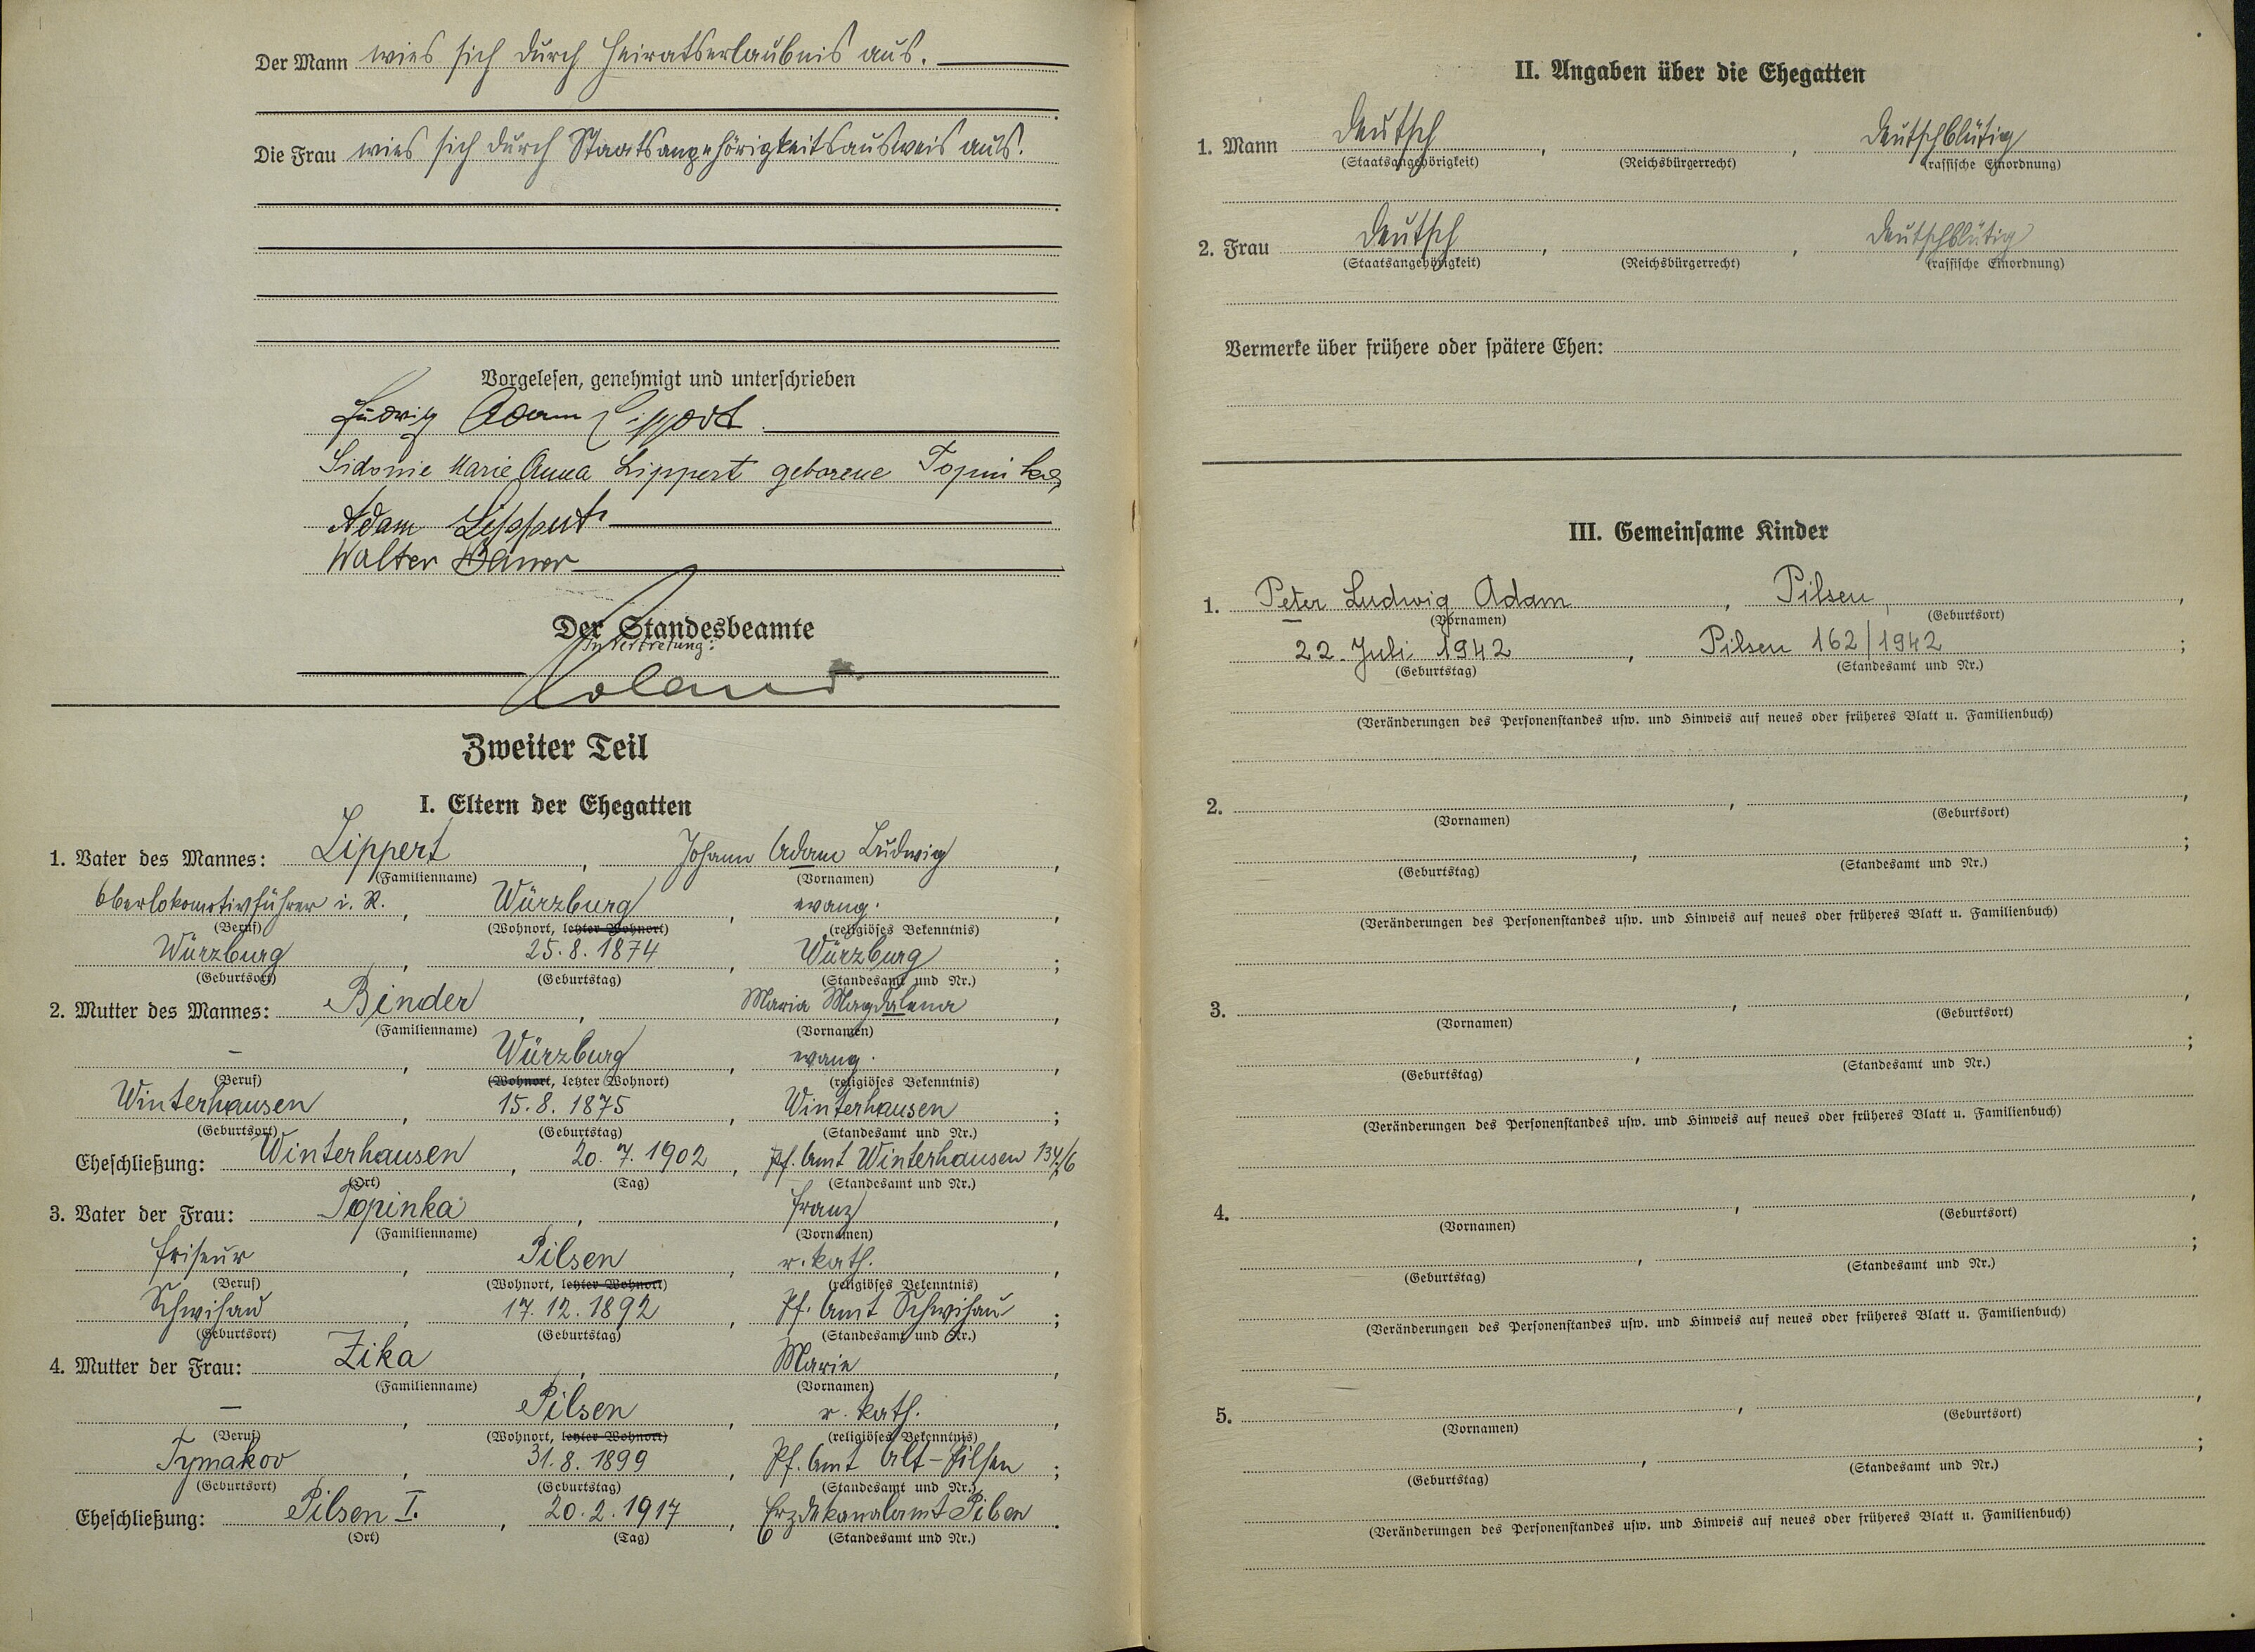 Der Mann wies sich durch Heiratserlaubnis aus.
Die Frau wies sich durch Staatsangehörigkeitsausweis aus.
Vorgelesen, genehmigt und unterschrieben
Ludwig Adam Lippert
Sidonie Marie Anna Lippert geborene Topinka
Adam Lippert
Walter
Der Standesbeamte
In Vertretung:
Roland
Zweiter Teil
I. Eltern der Ehegatten
1. Vater des Mannes: Lippert, Johann Adam Ludwig,
(Familienname) (Vornamen)
Oberlokomotivführer i. R., Würzburg, evang.,
(Beruf) (Wohnort, letzter Wohnort) (religiöses Bekenntnis)
Würzburg, 25.8.1874, Würzburg;
(Geburtsort) (Geburtstag) (Standesamt und Nr.)
2. Mutter des Mannes: Binder, Maria Magdalena,
(Familienname) (Vornamen)
–, Würzburg, evang.,
(Beruf) (Wohnort, letzter Wohnort) (religiöses Bekenntnis)
Winterhausen, 15.8.1875, Winterhausen;
(Geburtsort) (Geburtstag) (Standesamt und Nr.)
Eheschließung: Winterhausen, 20.7.1902, Pf. Amt Winterhausen 134/6
(Ort) (Tag) (Standesamt und Nr.)
3. Vater der Frau: Topinka, Franz,
(Familienname) (Vornamen)
Friseur, Pilsen, r. kath.,
(Beruf) (Wohnort, letzter Wohnort) (religiöses Bekenntnis)
Schwihau, 17.12.1892, Pf. Amt Schwihau;
(Geburtsort) (Geburtstag) (Standesamt und Nr.)
4. Mutter der Frau: Zika, Marie,
(Familienname) (Vornamen)
–, Pilsen, r. kath.,
(Beruf) (Wohnort, letzter Wohnort) (religiöses Bekenntnis)
Tymakov, 31.8.1899, Pf. Amt Alt-Pilsen;
(Geburtsort) (Geburtstag) (Standesamt und Nr.)
Eheschließung: Pilsen I., 20.2.1917, Erzdekanalamt Pilsen.
(Ort) (Tag) (Standesamt und Nr.)
II. Angaben über die Ehegatten
1. Mann Deutsch, , Deutschblütig
(Staatsangehörigkeit) (Reichsbürgerrecht) (rassische Einordnung)
2. Frau Deutsch, , Deutschblütig
(Staatsangehörigkeit) (Reichsbürgerrecht) (rassische Einordnung)
Vermerke über frühere oder spätere Ehen:
III. Gemeinsame Kinder
1. Peter Ludwig Adam, Pilsen,
(Vornamen) (Geburtsort)
22. Juli 1942, Pilsen 162/1942;
(Geburtstag) (Standesamt und Nr.)
(Veränderungen des Personenstandes usw. und Hinweis auf neues oder früheres Blatt u. Familienbuch)
2. , ,
(Vornamen) (Geburtsort)
, ;
(Geburtstag) (Standesamt und Nr.)
(Veränderungen des Personenstandes usw. und Hinweis auf neues oder früheres Blatt u. Familienbuch)
3. , ,
(Vornamen) (Geburtsort)
, ;
(Geburtstag) (Standesamt und Nr.)
(Veränderungen des Personenstandes usw. und Hinweis auf neues oder früheres Blatt u. Familienbuch)
4. , ,
(Vornamen) (Geburtsort)
, ;
(Geburtstag) (Standesamt und Nr.)
(Veränderungen des Personenstandes usw. und Hinweis auf neues oder früheres Blatt u. Familienbuch)
5. , ,
(Vornamen) (Geburtsort)
, ;
(Geburtstag) (Standesamt und Nr.)
(Veränderungen des Personenstandes usw. und Hinweis auf neues oder früheres Blatt u. Familienbuch)